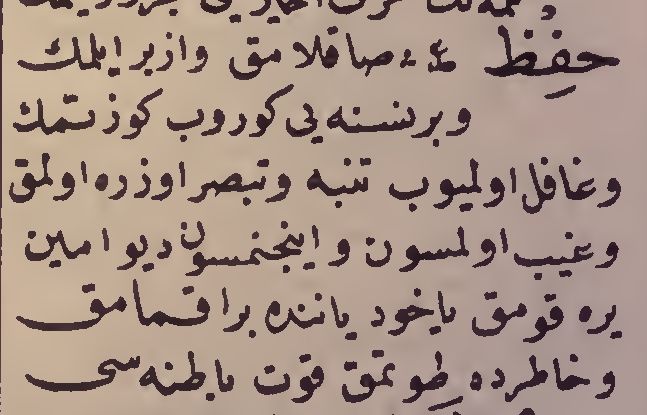 حِفْظ ع : صاقلامق و ازبر ايلمك
و برنسنه يى كوروب كوزتمك
و غافل اولميوب تنبه و تبصر اوزره اولمق
و غيب اولمسون و اينجنمسون ديو امين
يره قومق ياخود ياننده براقمامق
و خاطرده طوتمق قوت باطنه سى